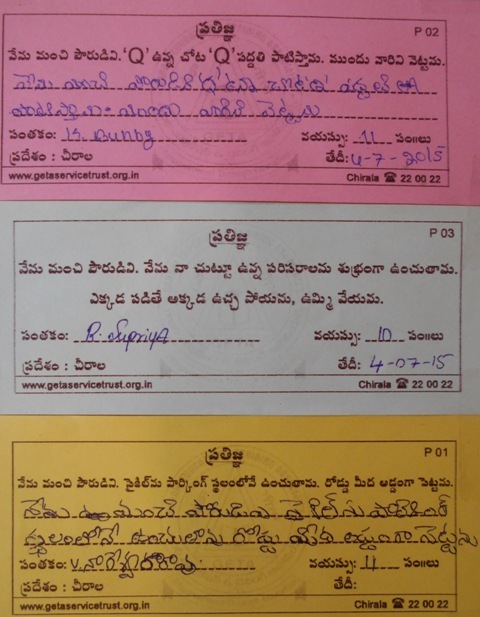 ప్రతిజ్ఞ P 02
నేను మంచి పౌరుడిని. 'Q' ఉన్న చోట 'Q' పద్ధతి పాటిస్తాను. ముందు వారిని నెట్టను.
నేను మంచి పౌరుడిని 'Q' ఉన్న చోట 'Q' పద్ధతి
పాటిస్తాను. ముందు వారిని నెట్టను
సంతకం: K. Bunny వయస్సు: 11 సం॥లు
ప్రదేశం : చీరాల తేదీ: 4-7-2015
www.getaservicetrust.org.in Chirala ☎ 22 00 22
ప్రతిజ్ఞ P 03
నేను మంచి పౌరుడిని. నేను నా చుట్టూ ఉన్న పరిసరాలను శుభ్రంగా ఉంచుతాను.
ఎక్కడ పడితే అక్కడ ఉచ్చ పోయను, ఉమ్మి వేయను.
సంతకం: R. Supriya వయస్సు: 10 సం॥లు
ప్రదేశం : చీరాల తేదీ: 4-07-15
www.getaservicetrust.org.in Chirala ☎ 22 00 22
ప్రతిజ్ఞ P 01
నేను మంచి పౌరుడిని. సైకిల్‌ను పార్కింగ్ స్థలంలోనే ఉంచుతాను. రోడ్డు మీద అడ్డంగా పెట్టను.
నేను మంచి పౌరుడును సైకిల్‌ను పార్కింగ్
స్థలంలోనే ఉంచుతాను రోడ్డు మీద అడ్డంగా పెట్టను
సంతకం: వయస్సు: 11 సం॥లు
ప్రదేశం : చీరాల తేదీ:
www.getaservicetrust.org.in Chirala ☎ 22 00 22